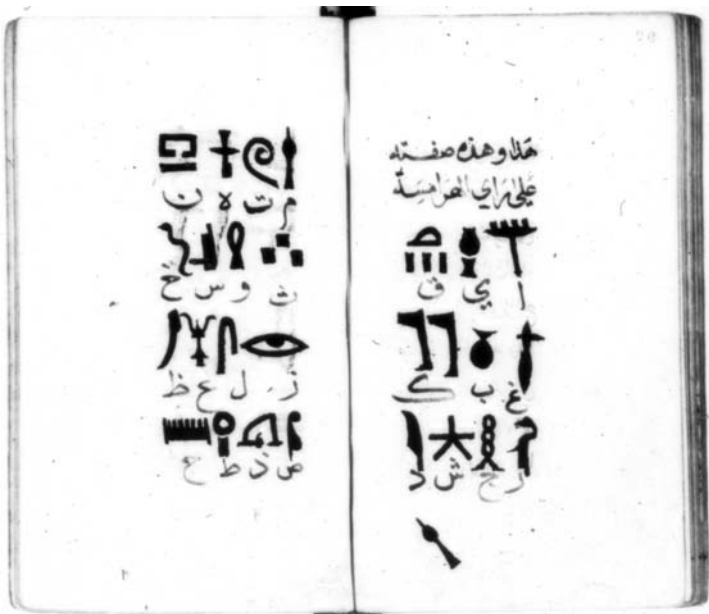 هذا وهذه صفته
على راي الهرامسة
ا ي ق
غ ب ك
ر ج ش د
م ت ه ن
ث و س خ
ز ل ع ظ
ص ذ ط ح